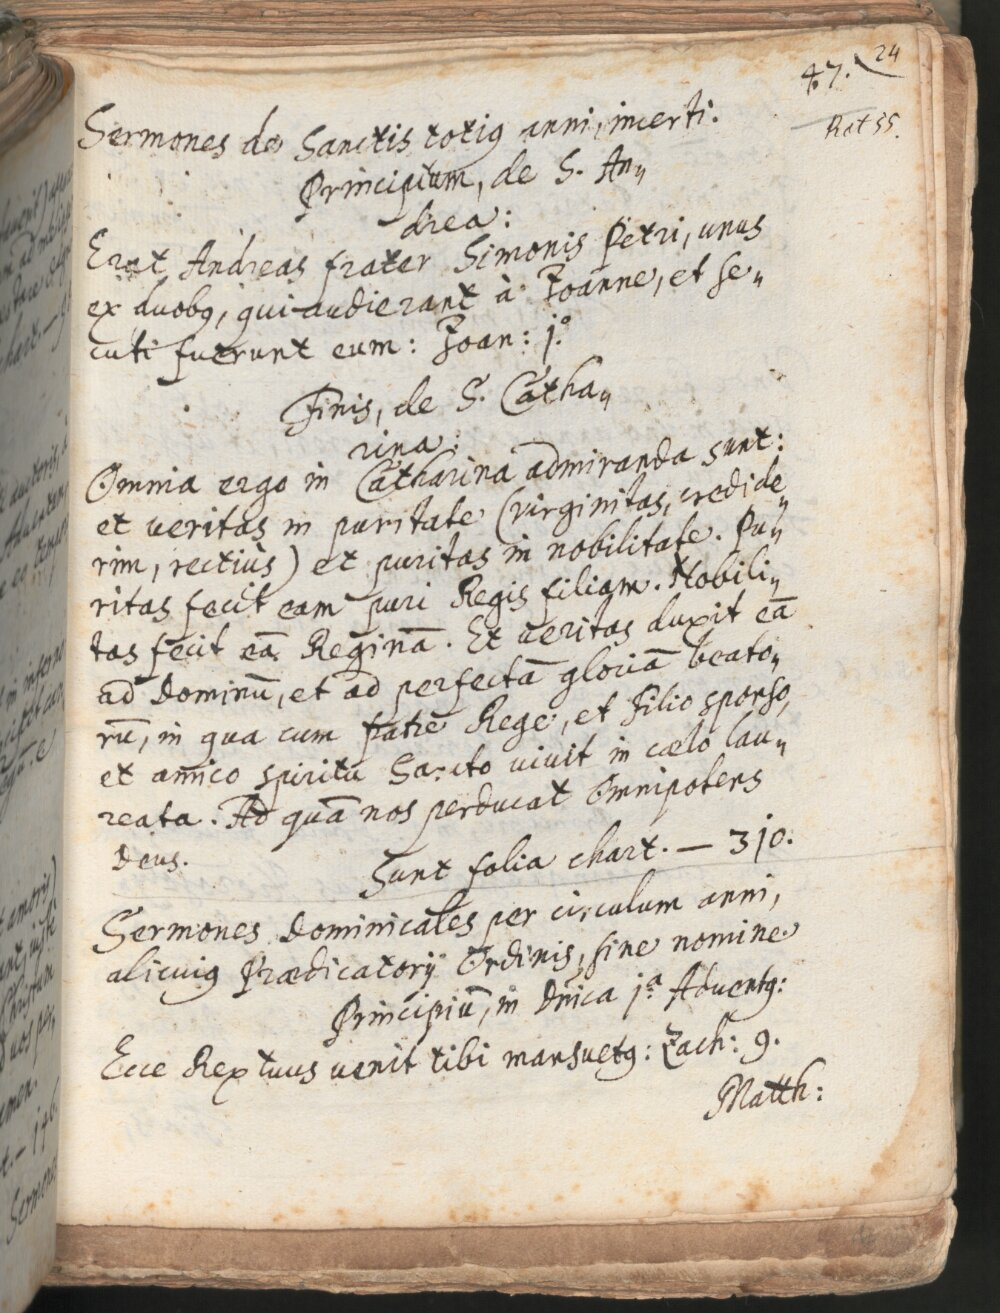 47. 24
Rat 55.
Sermones de Sanctis totiꝰ anni, incerti.
Principium, de S. An„
drea:
Erat Andreas frater Simonis Petri, unus
ex duobꝰ, qui audierant à Joanne, et se„
cuti fuerunt eum: Joan: j.º
Finis, de S. Catha„
rina:
Omnia ergo in Catharina admiranda sunt:
et veritas in puritate (virginitas, credide„
rim, rectiùs) et puritas in nobilitate. Pu„
ritas fecit eam puri Regis filiam. Nobili„
tas fecit eā Reginā. Et veritas duxit eā
ad Dominū, et ad perfectā gloriā beato„
rū, in qua cum Patre Rege, et Filio sponso,
et amico spiritu Sancto vivit in cælo lau„
reata. Ad quā nos perducat Omnipotens
Deus.
Sunt folia chart. — 3j0.
Sermones Dominicales per circulum anni,
alicuiꝰ Prædicatorij Ordinis, sine nomine
Principiū, in Dnica j.ª Adventꝰ:
Ecce Rex tuus venit tibi mansuetꝰ: Zach: 9.
Matth: